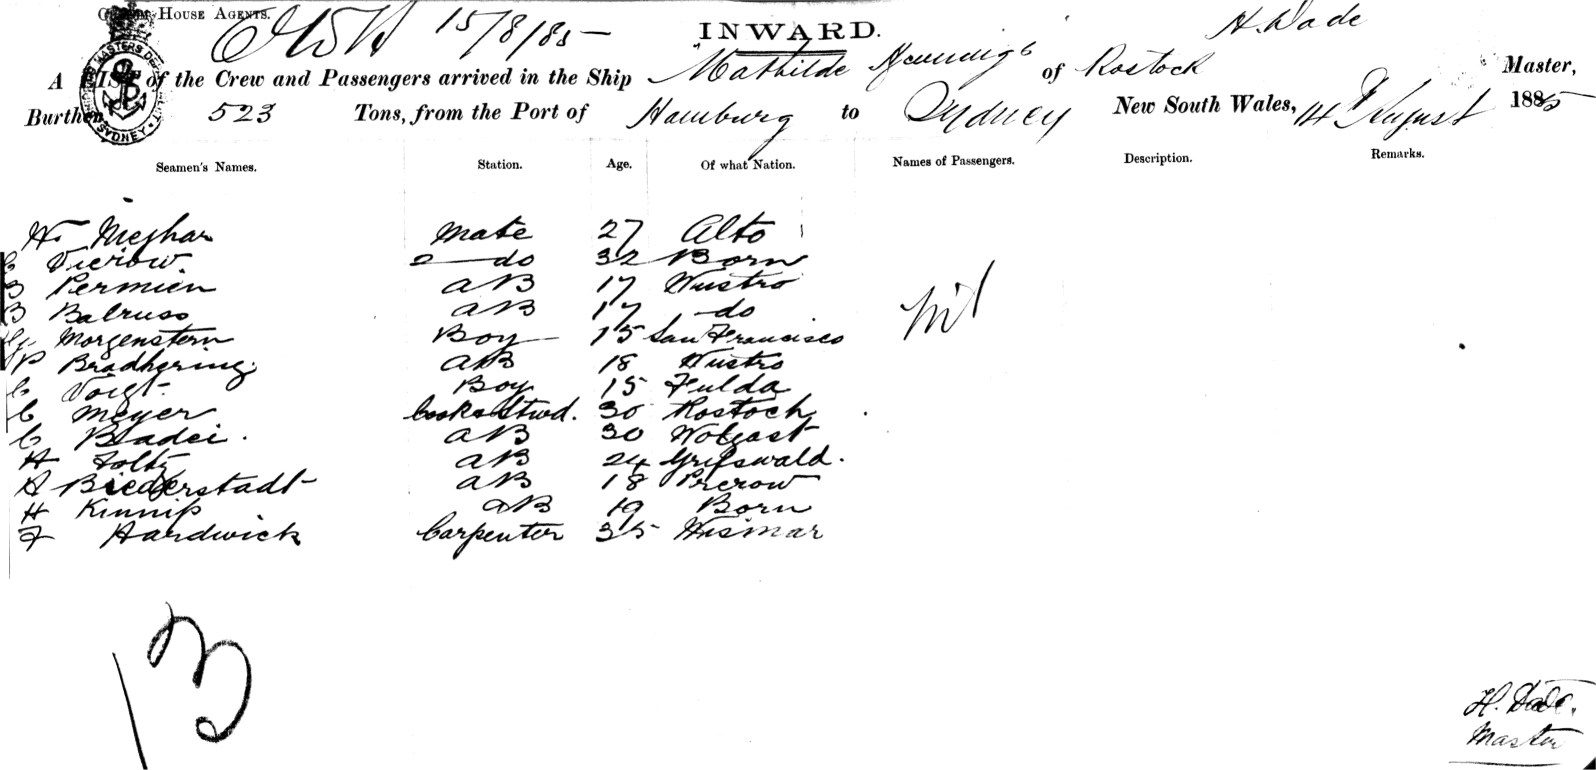 House Agents.
15/8/85
INWARD.
H. Dade
A LIST of the Crew and Passengers arrived in the Ship "Mathilde Hennings" of Rostock Master,
Burthen 523 Tons, from the Port of Hamburg to Sydney New South Wales, 14 August 1885
SYDNEY
Seamen's Names. Station. Age. Of what Nation. Names of Passengers. Description. Remarks.
mate 27 Alto
C Vierow 2 do 32 Born
B Permien AB 17 Wustro
B Balruss AB 17 do
Morgenstern Boy 15 San Francisco
P Bradhering AB 18 Wustro
C Voigt Boy 15 Fulda
C Meyer Cook & Stwd. 30 Rostock
C Bladei. AB 30 Wolgast
H Foltz AB 24 Grifswald.
A Biederstadt AB 18 Prerow
H Kinnip AB 19 Born
F Hardwick Carpenter 35 Wismar
nil
13
H. Dade.
Master